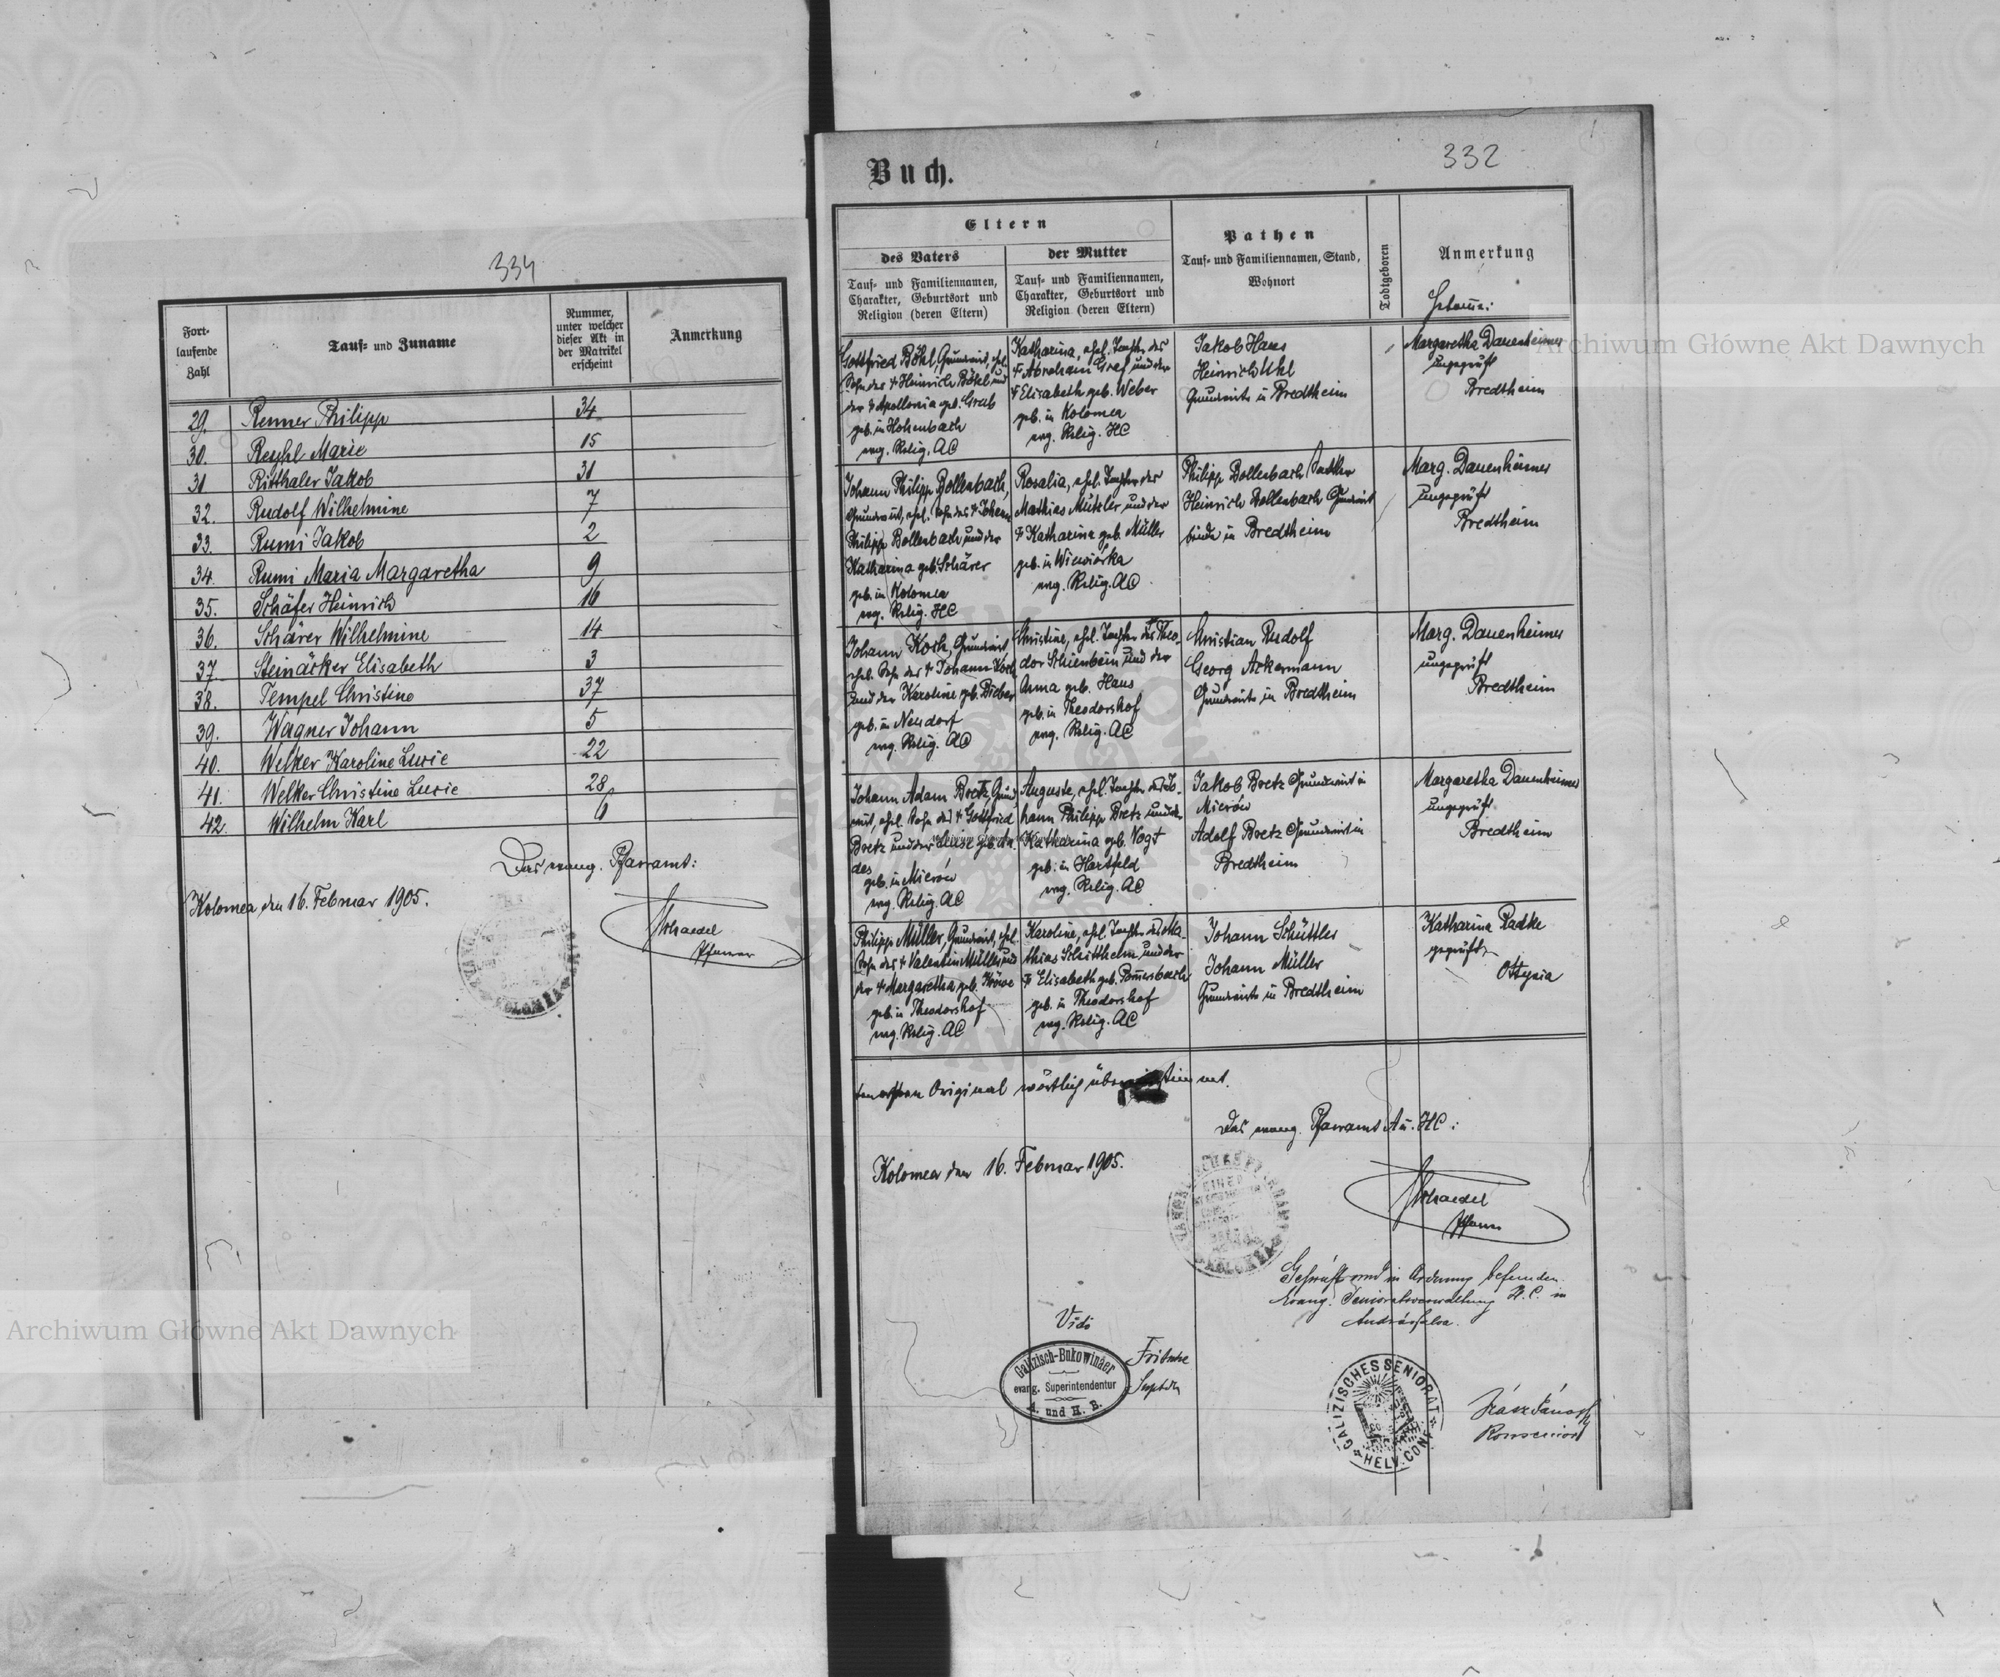 334
Fort-
laufende
Zahl
Tauf- und Zuname
Nummer,
unter welcher
dieser Akt in
der Matrikel
erscheint
Anmerkung
29. Renner Philipp 34
30. Reyhl Marie 15
31 Ritthaler Jakob 31
32. Rudolf Wilhelmine 7
33. Rumi Jakob 2
34. Rumi Maria Margaretha 9
35. Schäfer Heinrich 16
36. Schärer Wilhelmine 14
37. Steinäcker Elisabeth 3
38. Tempel Christine 37
39. Wagner Johann 5
40. Welker Karoline Luzie 22
41. Welker Christine Luzie 28
42. Wilhelm Karl 6
Das evang. Pfarramt:
Kolomea, den 16. Februar 1905.
Schaedel
Pfarrer
Buch.
332
Eltern
des Vaters
Tauf- und Familiennamen,
Charakter, Geburtsort und
Religion (deren Eltern)
der Mutter
Tauf- und Familiennamen,
Charakter, Geburtsort und
Religion (deren Eltern)
Pathen
Tauf- und Familiennamen, Stand,
Wohnort
Todtgeboren
Anmerkung
Gottfried Böhl, Grundwirt, ehel.
Sohn des † Heinrich Böhl und
der † Apollonia geb. Grub
geb. in Hohenbach
evg. Relig. AC
Katharina, ehel. Tochter des
† Abraham Graf und der
† Elisabeth geb. Weber
geb. in Kolomea
evg. Relig. HC
Jakob Haus
Heinrich Uhl
Grundwirte in Bredtheim
Margaretha Dauenheimer
ungeprüft
Bredtheim
Johann Philipp Bollenbach,
Grundwirt, ehel. Sohn des † Johann
Philipp Bollenbach und der
Katharina geb. Schärer
geb. in Kolomea
evg. Relig. HC
Rosalia, ehel. Tochter des
Mathias Mutzler und der
† Katharina geb. Müller
geb. in Wiewiórka
evg. Relig. AC
Philipp Bollenbach Sattler
Heinrich Bollenbach Grundwirt
beide in Bredtheim
Marg. Dauenheimer
ungeprüft
Bredtheim
Johann Koch, Grundwirt
ehel. Sohn des † Johann Koch
und der Karoline geb. Bieber
geb. in Neudorf
evg. Relig. AC
Christine, ehel. Tochter des Theo-
dor Schienbein und der
Anna geb. Haus
geb. in Theodorshof
evg. Relig. AC
Christian Rudolf
Georg Ackermann
Grundwirte in Bredtheim
Marg. Dauenheimer
ungeprüft
Bredtheim
Johann Adam Bretz, Grund-
wirt, ehel. Sohn des † Gottfried
Bretz und der Luise geb. An-
des
geb. in Mierów
evg. Relig. AC
Auguste, ehel. Tochter des Jo-
hann Philipp Bretz und der
Katharina geb. Vogt
geb. in Hartfeld
evg. Relig. AC
Jakob Bretz Grundwirt in
Mierów
Adolf Bretz Grundwirt in
Bredtheim
Margaretha Dauenheimer
ungeprüft
Bredtheim
Philipp Müller, Grundwirt, ehel.
Sohn des † Valentin Müller und
der † Margaretha geb.
geb. in Theodorshof
evg. Relig. AC
Karoline, ehel. Tochter des Ma-
thias Schitthelm und der
† Elisabeth geb. Pommersbach
geb. in Theodorshof
evg. Relig. AC
Johann Schüttler
Johann Müller
Grundwirte in Bredtheim
Katharina Radke
geprüft
Ottynia
Original wörtlich übereinstimmt.
Das evang. Pfarramt A u. HC:
Kolomea den 16. Februar 1905.
Schaedel
Pfarrer
Geprüft und in Ordnung befunden.
Evang. Senioratsverwaltung H. C. in
Andrásfalva.
Vidi
Galizisch-Bukowinaer
evang. Superintendentur
A. und H. B.
Fritsche
Suptdt
GALIZISCHES SENIORAT
HELV. CONF.
Szász János
Konsenior
Archiwum Główne Akt Dawnych
Archiwum Główne Akt Dawnych